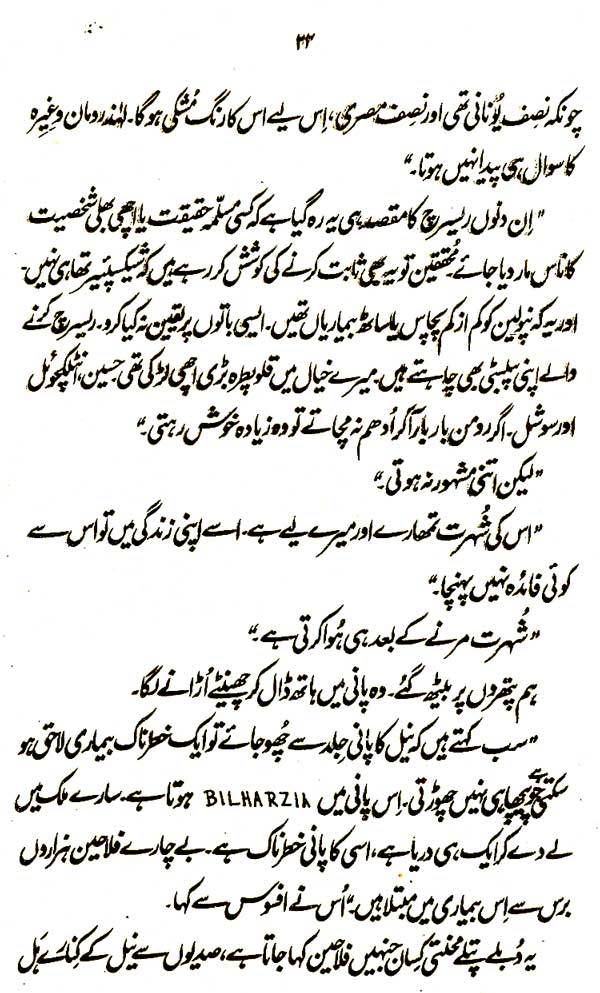 ۲۲
چونکہ نصف یُونانی تھی اور نصف مصری، اِس لیے اس کا رنگ مُشکی ہوگا۔ لہٰذا رومان وغیرہ
کا سوال ہی پیدا نہیں ہوتا۔"
"اِن دنوں ریسرچ کا مقصد ہی یہ رہ گیا ہے کہ کسی مسلّمہ حقیقت یا اچھی بھلی شخصیت
کا ناس مار دیا جائے۔ مُحققین تو یہ بھی ثابت کرنے کی کوشش کر رہے ہیں کہ شیکسپئیر تھا ہی نہیں۔
اور یہ کہ نپولین کو کم از کم پچاس یا ساٹھ بیماریاں تھیں۔ ایسی باتوں پر یقین نہ کیا کرو۔ ریسرچ کرنے
والے اپنی پبلسٹی بھی چاہتے ہیں۔ میرے خیال میں قلوپطرہ بڑی اچھی لڑکی تھی حسین، انٹلکچوئل
اور سوشل۔ اگر رومن بار بار آکر اُدھم نہ مچاتے تو وہ زیادہ خوش رہتی۔"
"لیکن اتنی مشہور نہ ہوتی۔"
"اس کی شُہرت تمھارے اور میرے لیے ہے۔ اسے اپنی زندگی میں تو اس سے
کوئی فائدہ نہیں پہنچا۔"
"شُہرت مرنے کے بعد ہی ہُوا کرتی ہے۔"
ہم پتھروں پر بیٹھ گئے۔ وہ پانی میں ہاتھ ڈال کر چھینٹے اُڑانے لگا۔
"سب کہتے ہیں کہ نیل کا پانی جِلد سے چُھو جائے تو ایک خطرناک بیماری لاحق ہو
سکتی ہے جو پیچھا ہی نہیں چھوڑتی۔ اِس پانی میں BILHARZIA ہوتا ہے۔ سارے ملک میں
لے دے کر ایک ہی دریا ہے، اسی کا پانی خطرناک ہے۔ بے چارے فلاحین ہزاروں
برس سے اِس بیماری میں مبتلا ہیں۔" اُس نے افسوس سے کہا۔
یہ دُبلے پتلے محنتی کِسان جنہیں فلاحین کہا جاتا ہے، صدیوں سے نیل کے کنارے ہَل